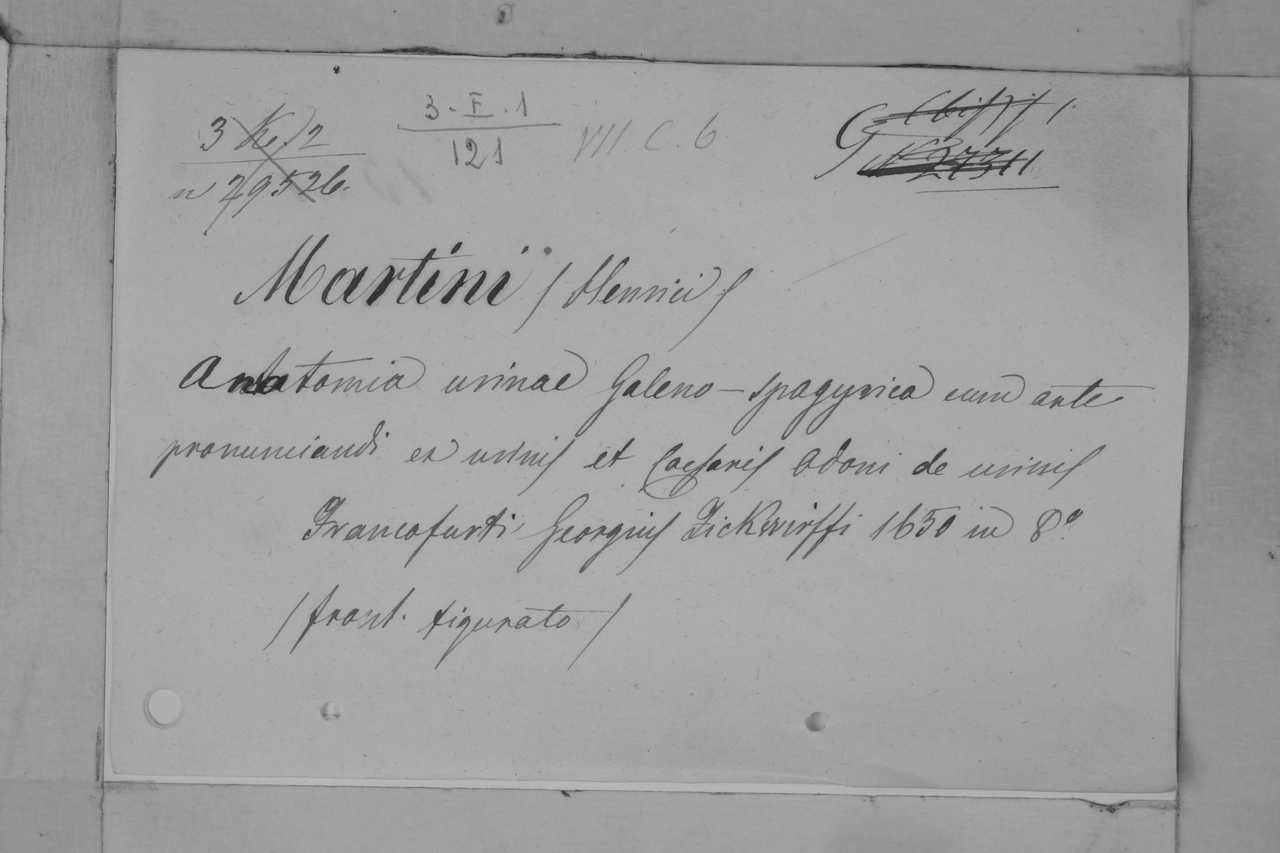 3 Ke 12
n 29526.
3. E. 1
121
VII C. 6
G
n 27311
Martini (Henrici)
Anatomia urinae Galeno-spagyrica cum arte
pronunciandi ex urinis et Caesaris Adoni de urinis
Francofurti Georgius Zickwirffi 1650 in 8°.
(front. figurato)